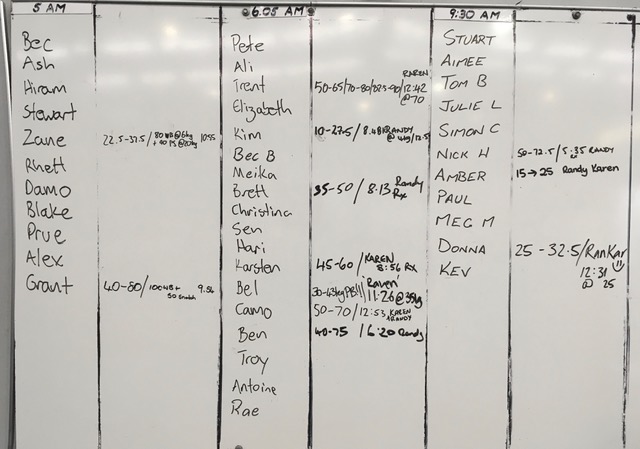 5 AM
Bec
Ash
Hiram
Stewart
Zane 22.5-37.5/ 80WB@6kg 10:55
Rhett
Damo
Blake
Prue
Alex
Grant 40-80/100WB+ 9.56
50 snatch
6.05 AM
Pete
Ali
Trent 50-65/70-80/82.5-90/12:42
KAREN
@70
Elizabeth
Kim 10-27.5/8.48 RANDY
Bec B
Meika
Brett 35-50/8:13 Randy
Rx
Christina
Sen
Hari
Karsten 45-60/KAREN
8:56 Rx
Bel 30-43kg PB!!! Raven
11:26@35kg
Camo 50-70/12:53 KAREN
RANDY
Ben 40-75 /6:20 Randy
Troy
Antoine
Rae
9:30 AM
STUART
AIMEE
TOM B
JULIE L
SIMON C
NICK H 50-72.5/5:35 RANDY
AMBER 15→25 Randy Karen
PAUL
MEG M
DONNA 25-32.5/RanKar
KEV 12:31
@ 25